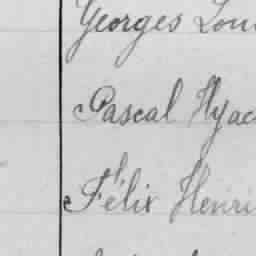 Georges Lou
Pascal Hyac
Félix Henri